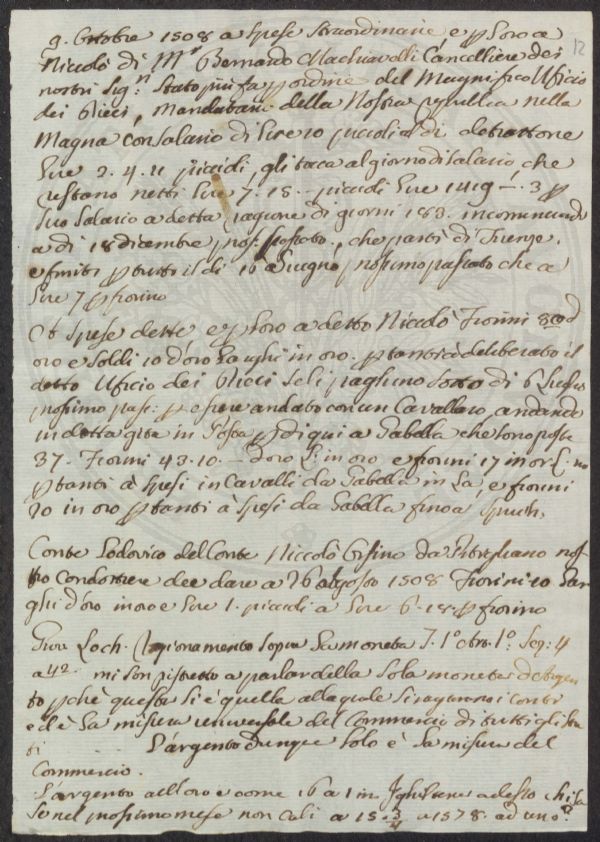 9. Ottobre 1508 a spese straordinarie, e p loro a
Niccolò di Mr Bernardo Machiavelli Cancelliere dei
nostri Sig.n Stato più fa p ordine del Magnifico Uficio
dei Dieci, Mandatario della Nostra republica nella
Magna con salario di lire 10 piccioli il dì detrattone
lire 2. 4. piccioli, gli tocca al giorno di salario, che
restano netti lire 7. 15. piccioli lire 1419 –. 3 p
suo salario a detta ragione di giorni 183. incominciando
a dì 18 dicembre pross: passato, che partì di Firenze,
e finiti p tutto il dì 16 Giugno prossimo passato che a
lire 7 p fiorino
E a spese dette e p loro a detto Niccolò Fiorini 80 d
oro e soldi 10 d'oro larghi in oro. p tanti à deliberato il
detto Uficio dei Dieci se li paghino sotto dì 6 Luglio
prossimo pass: p essere andato con un Cavallaro, andando
in detta gita in Posta p di qui a Gabella che sono poste
37. Fiorini 43. 10. – d'oro L. in oro e fiorini 17 in or L. no
p tanti à spesi in Cavalli da Gabella in là, e fiorini
20 in oro p tanti à spesi da Gabella fino a
Conte Lodovico del Conte Niccolò Orsino da Pitigliano nos
tro Condottiere dee dare a 26 Agosto 1508 Fiorini 10 lar
ghi d'oro in oro e lire 1. piccioli a lire 6. 18. p fiorino
Giov. Loch. Ragionamento sopra la moneta T. 1º 1º. Sez: 4
a 42. mi son ristretto a parlar della sola moneta d'Argen
to pchè questa si è quella alla quale si ragguagliano i conti
ed è la misura universale del Commercio di tutti gli Sta
ti L'argento dunque solo è la misura del
Commercio.
L'argento all'oro è come 16 a 1 in Inghilterra adesso chi sa
se nel prossimo mese non cali a 15. 3/4 a 1578. ad uno?
12